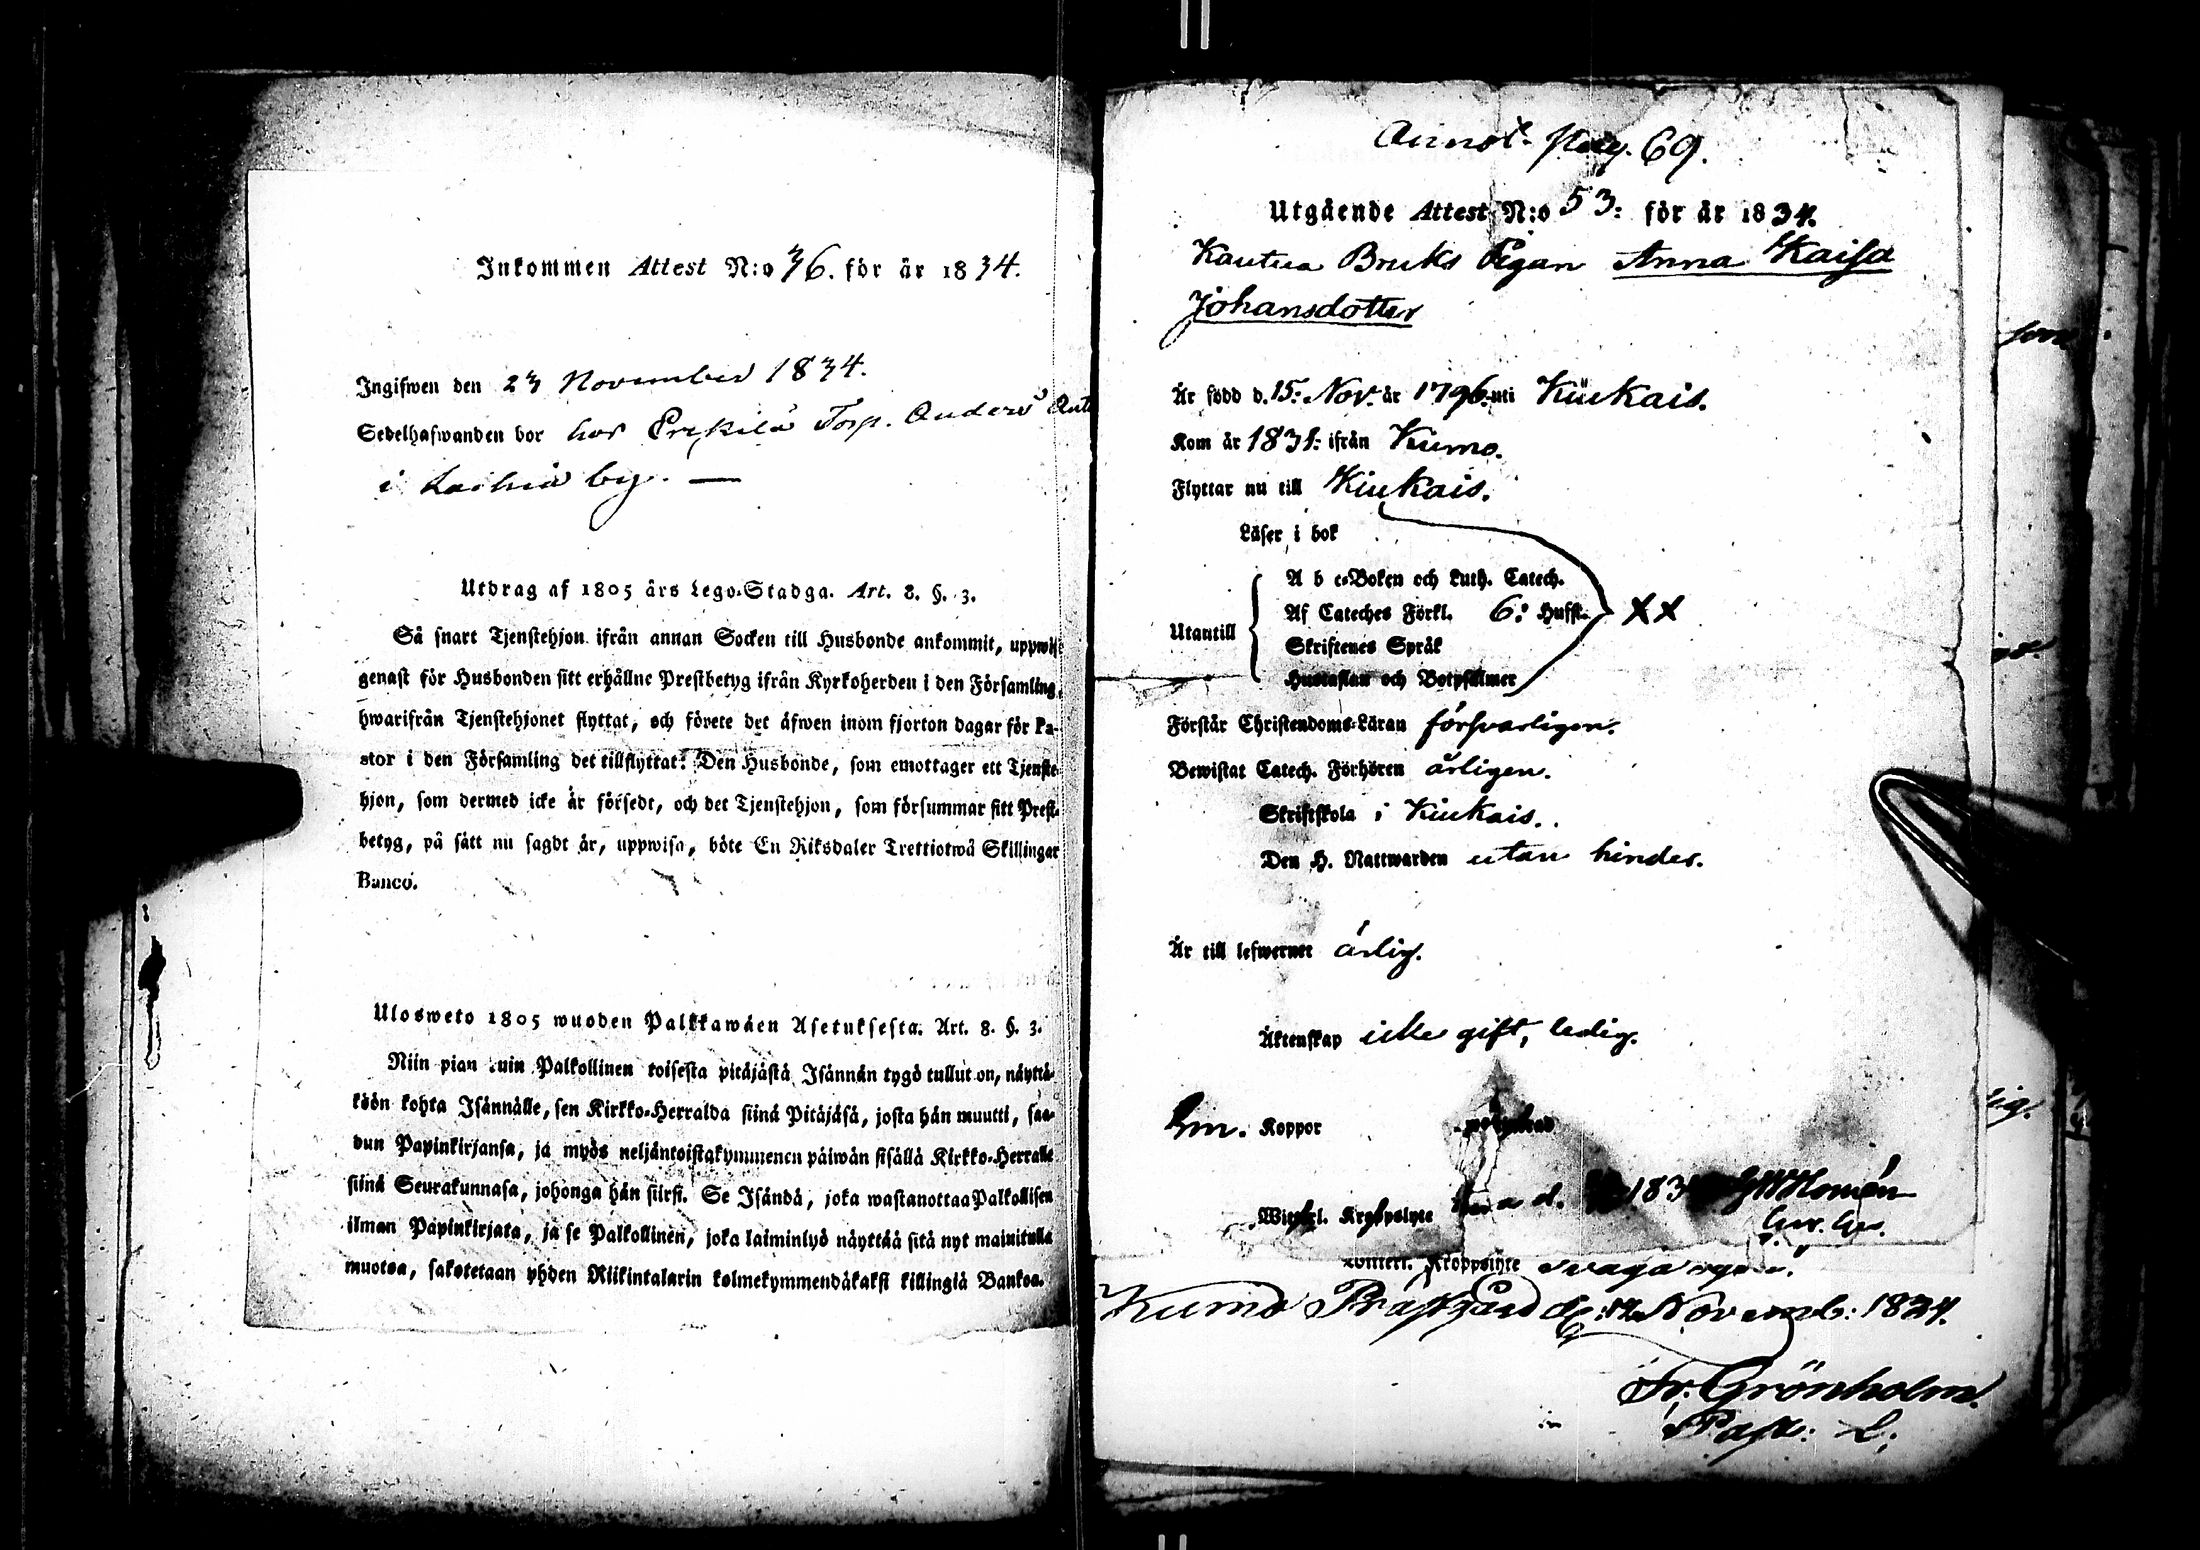 Inkommen Attest N:o 36. för år 1834.
Ingifwen den 23 November 1834.
Sedelhafwanden bor hos Torp. Anders
i by. —
Utdrag af 1805 års Lego-Stadga. Art. 8. §. 3.
Så snart Tjenstehjon ifrån annan Socken till Husbonde ankommit, uppwise
genast för Husbonden sitt erhållne Prestbetyg ifrån Kyrkoherden i den Församling,
hwarifrån Tjenstehjonet flyttat, och förete det äfwen inom fjorton dagar för Pa-
stor i den Församling det tillflyttat. Den Husbonde, som emottager ett Tjenste-
hjon, som dermed icke är försedt, och det Tjenstehjon, som försummar sitt Prest-
betyg, på sätt nu sagdt är, uppwisa, böte En Riksdaler Trettiotwå Skillingar
Banco.
Ulosweto 1805 wuoden Palkkawäen Asetuksesta. Art. 8. §. 3.
Niin pian kuin Palkollinen toisesta pitäjästä Isännän tygö tullut on, näyttä-
köön kohta Isännälle, sen Kirkko-Herralda siinä Pitäjäsä, josta hän muutti, saa-
dun Papinkirjansa, ja myös neljäntoistakymmenen päiwän sisällä Kirkko-Herralle
siinä Seurakunnasa, johonga hän siirsi. Se Isändä, joka wastanottaa Palkollisen
ilman Papinkirjata, ja se Palkollinen, joka laiminlyö näyttää sitä nyt mainitulla
muotoa, sakotetaan yhden Riikintalarin kolmekymmendäkaksi killingiä Bankoa.
Annot. pag. 69.
Utgående Attest N:o 53: för år 1834.
Kautua Bruks Pigan Anna Kaisa
Johansdotter
Är född d. 15: Nov. år 1796. uti Kiukais.
Kom år 1831: ifrån Kumo.
Flyttar nu till Kiukais.
Läser i bok
A b c-Boken och Luth. Catech.
Af Cateches Förkl. 6: Hufst. XX
Utantill
Skriftenes Språk
Hustaflan och Botpsalmer
Förstår Christendoms-Läran försvarligen.
Bewistat Catech. Förhören årligen.
Skriftskola i Kiukais.
Den H. Nattwarden utan hinder.
Är till lefwernet ärlig.
Äktenskap icke gift, ledig.
Koppor
Kroppslyte 183
Kroppslyte svaga
Kumo Prästgård d: Novemb: 1834.
Fr. Grönholm.
Past: L: